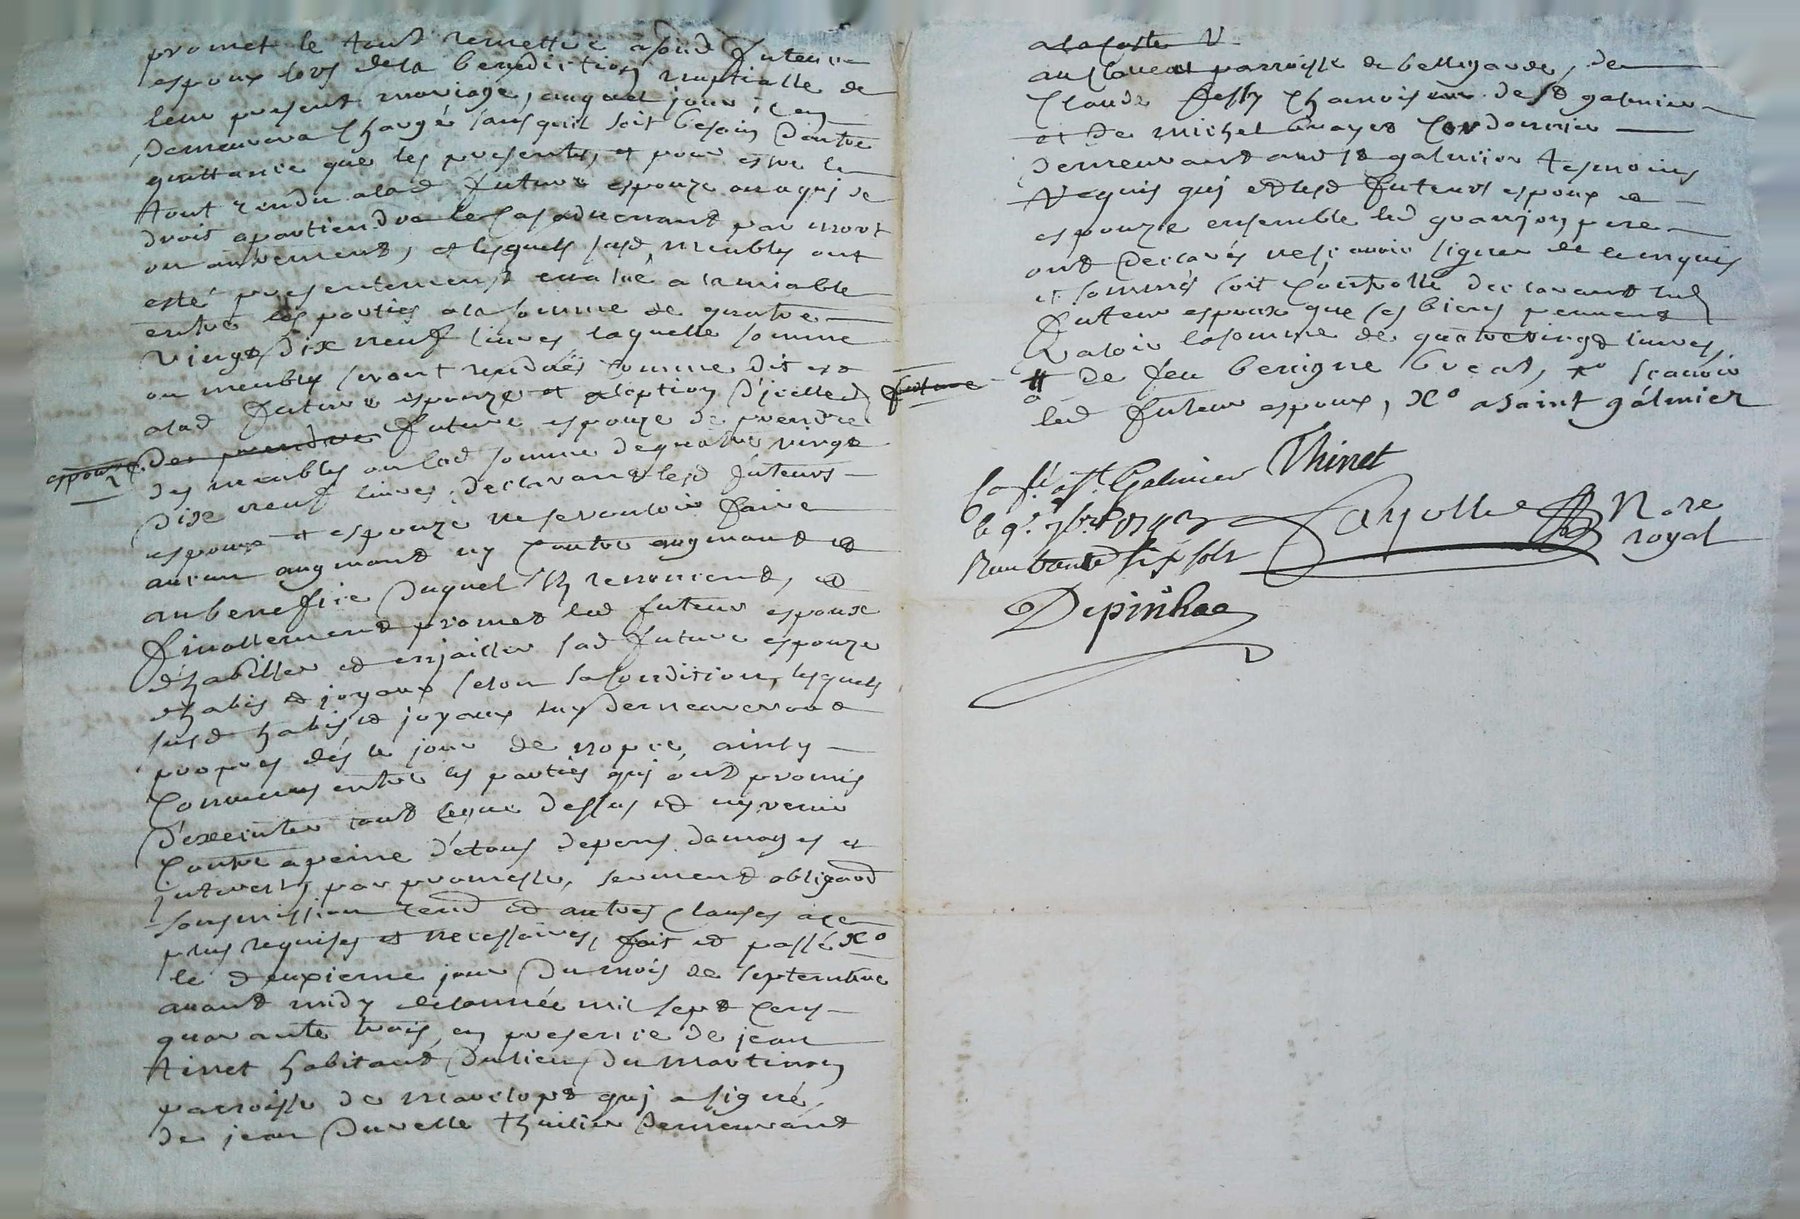 promet le tout remettre a sond. futeur
espoux lors de la benediction nuptialle de
leur present mariage, auquel jour il en
demeurera chargé sans quil soit besoin dautre
quittance que les presents, et pour estre le
tout rendu alad. future espouze ou a qui de
droit apartiendra le cas advenant par mort
ou autrement, et lesquels susd. meubles ont
esté presentement evalué a lamiable
entre les parties ala somme de quatre
vingt dix neuf livres laquelle somme
ou meubles seront rendues comme dit est
alad. future espouze et aloption d'icelle
future
des prendre future espouze de prendre
espouze
des meubles ou lad. somme de quatre vingt
dix neuf livres, declarant lesd. futeurs
espoux et espouze ne se vouloir faire
aucun augment ny contre augment et
au benefice duquel ils renoncent, et
finallement promet led. futeur espoux
d'habiller et enjailler sad. future espouze
d'habis et joyaux selon sa condition, lesquels
susd. habis et joyaux luy demeureront
propres dés le jour de nopce, ainsy
convenus entre les parties qui ont promis
d'executer tout leque dessus et ny venir
contre a peine de tous depens damages et
interests, par promesse, serment obligaon
soumission renon et autres clauses a ce
plus requises et necessaires, fait et passé Xo
le deuxieme jour du mois de septembre
avant midy de lannée mil sept cens
quarante trois, en presence de jean
tinet habitant du lieu du martinon
parroisse de mavelopt qui a signé,
de jean duvelle thuilier demeurant
a la coste V
au parroisse de bellegarde, de
Claude Chanois de St galmier
et de michel Cordonnier
demeurant aud. St galmier tesmoins
requis qui et lesd. futeurs espoux et
espouze ensemble led. pere
ont declarés ne scavoir signer de ce enquis
et sommés soit controllé declarant led.
futeur espoux que ses biens peuvent
valoir la somme de quatrevingt livres,
de feu benigne scavoir
led. futeur espoux, Xo a saint galmier
Coslé a St. Galmier Thinet
le 9e 7bre 1743
Reçu six sols Nore
royal
Depinhac